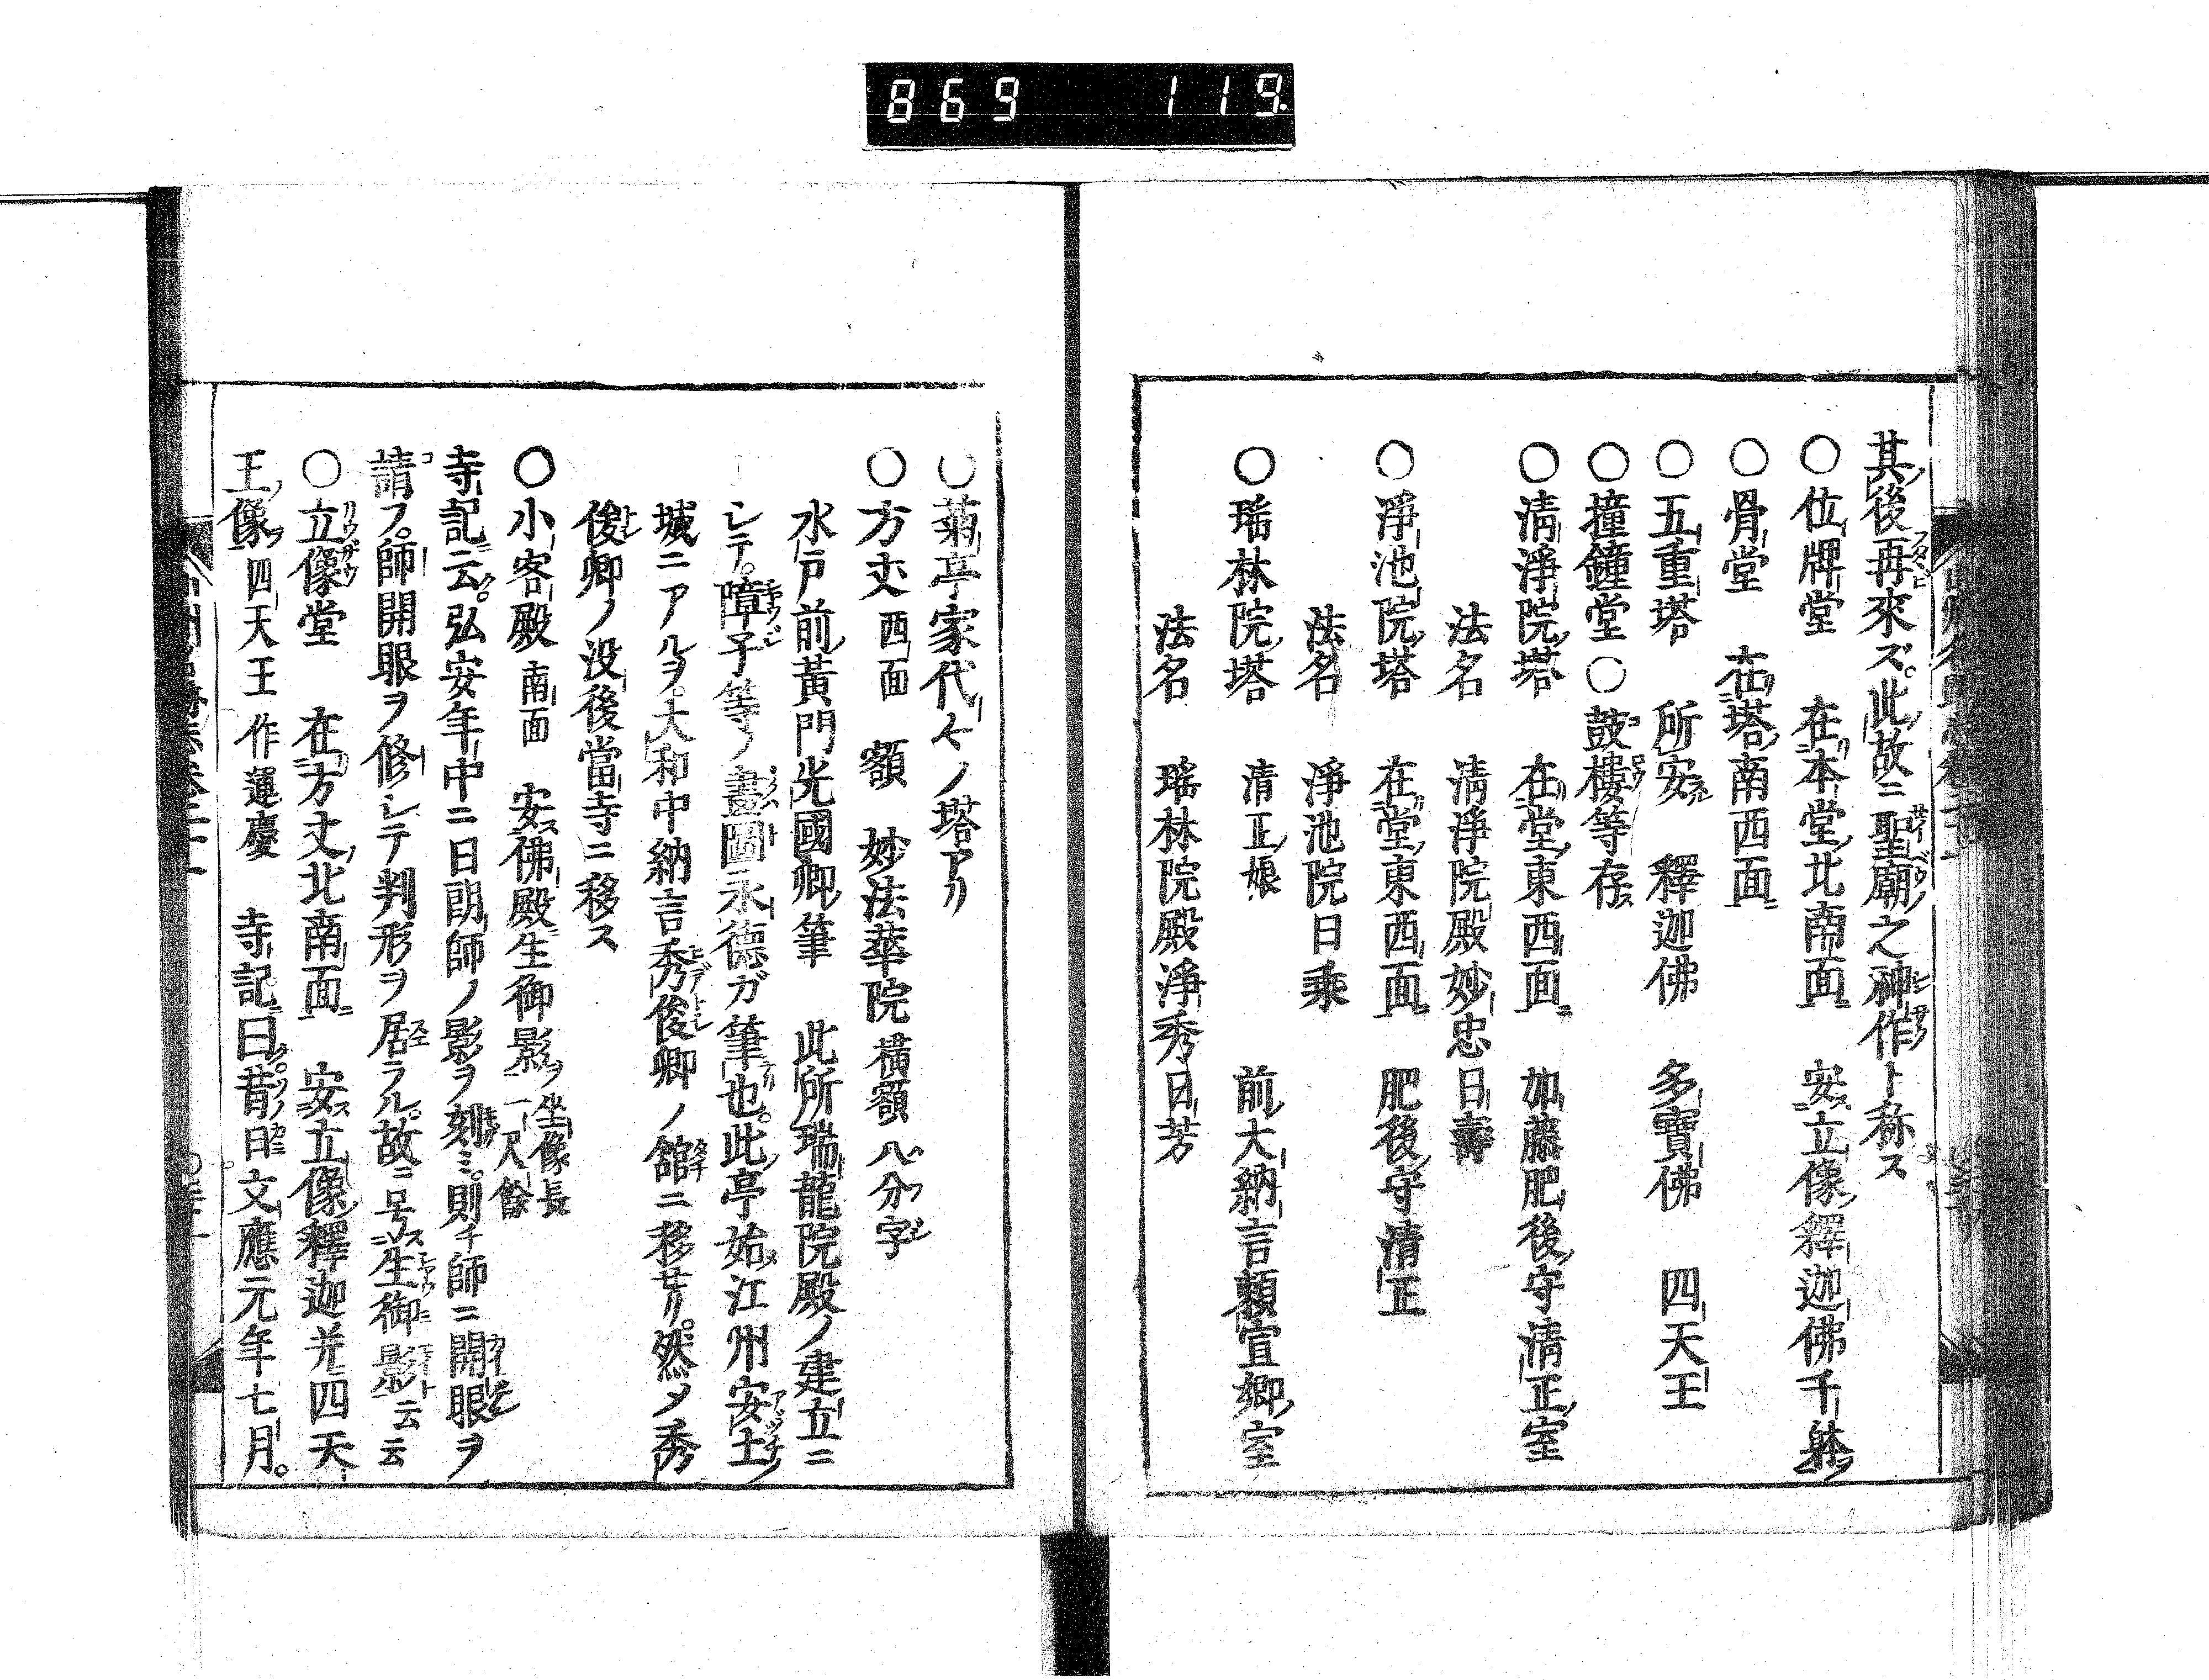 869 119
其後再來ズ。此故ニ聖廟之神作ト称ス
○位牌堂 在本堂北南面 安立像釋迦佛千躰
○骨堂 在塔南西面
○五重塔 所安 釋迦佛 多寶佛 四天王
○撞鐘堂○鼓樓等存ス
○清淨院塔 在堂東西面 加藤肥後守清正室
法名 清淨院殿妙忠日壽
○淨池院塔 在堂東西面 肥後守清正
法名 淨池院日乘
○瑤林院塔 清正娘 前大納言頼宣卿室
法名 瑤林院殿淨秀日芳
○菊亭家代々ノ塔アリ
○方丈西面 額 妙法華院横額八分字
水戸前黃門光國卿筆 此所瑞龍院殿ノ建立ニ
シテ。障子等ノ畫圖永德ガ筆也。此亭始江州安土
城ニアルヲ。大和中納言秀俊卿ノ舘ニ移セリ。然ヲ秀
俊卿ノ没後當寺ニ移ス
○小客殿南面 安佛殿生御影坐像長一尺餘
寺記云。弘安年中ニ日朗師ノ影ヲ刻ミ。則チ師ニ開眼ヲ
請フ。師開眼ヲ修シテ判形ヲ居ラル。故ニ号ス生御影ト云云
○立像堂 在方丈北南面 安立像釋迦并四天
王像四天王作運慶 寺記曰。昔日文應元年七月。